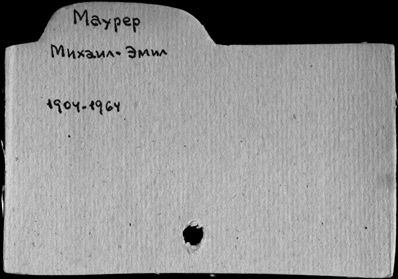 Маурер
Михаил-Эмил
1904-1964